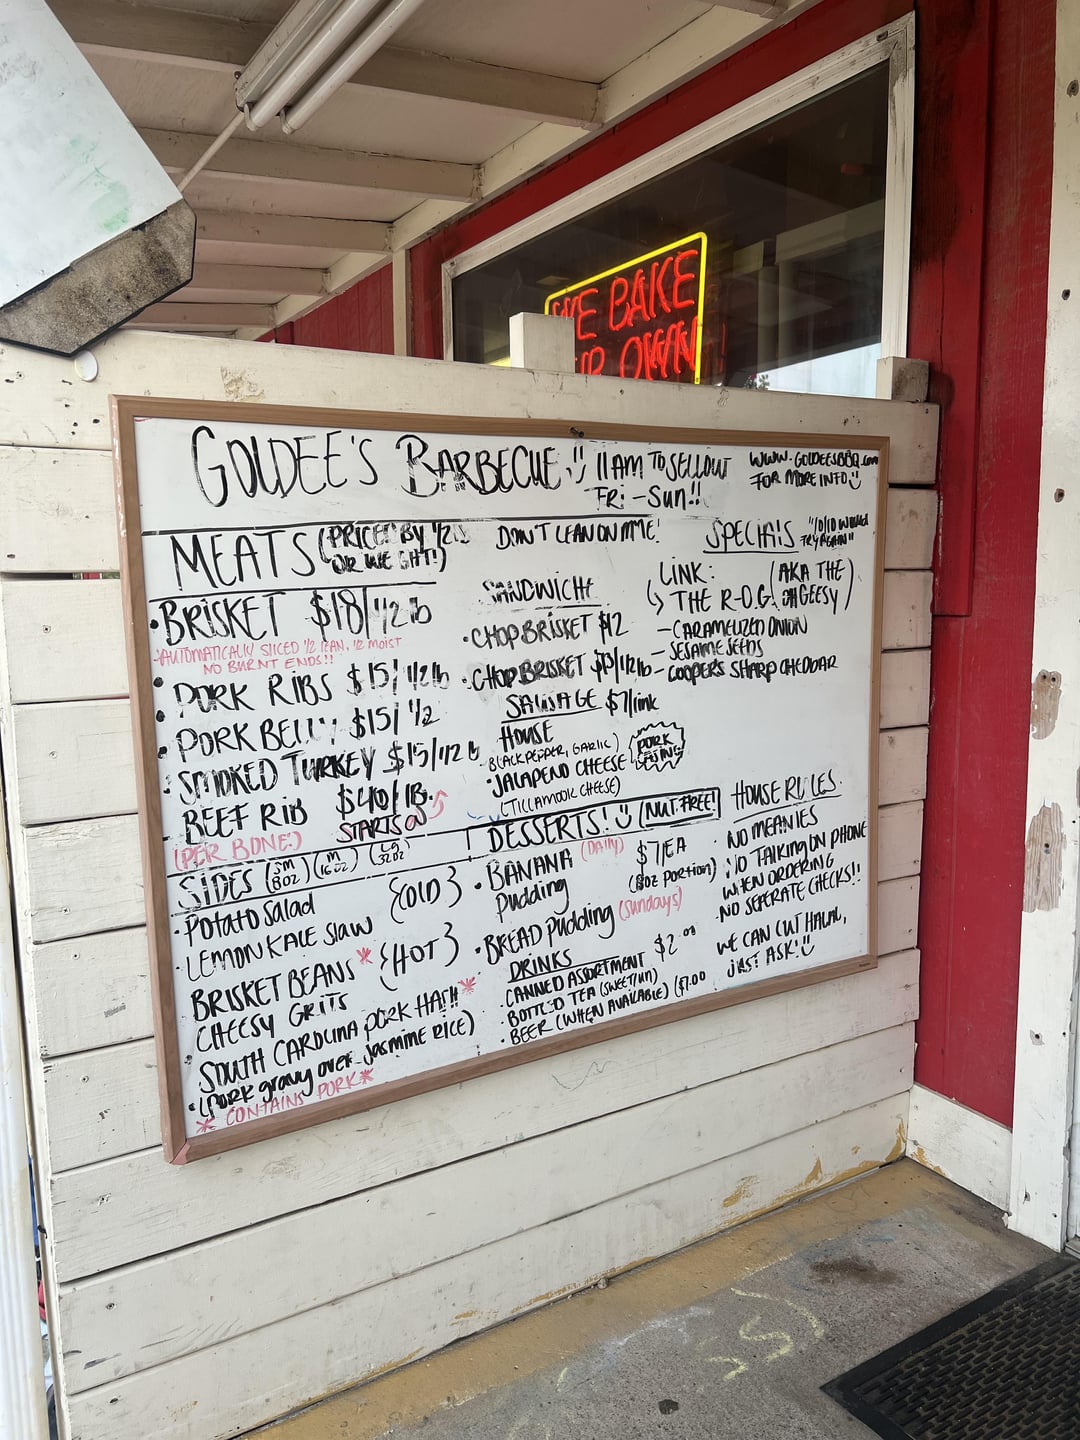 WE BAKE
OUR OWN
GOLDEE'S BARBECUE
11AM TO SELLOUT
FRi - SUN!!
WWW.GOLDEESBBQ.com
FOR MORE INFO
MEATS (PRICED BY 1/2 lb
OR WEIGHT!)
DON'T LEAN ON ME!
BRISKET $18/1/2 lb
*AUTOMATICALLY SLICED 1/2 LEAN, 1/2 MOIST
NO BURNT ENDS!!
PORK RIBS $15/1/2 lb
PORK BELLY $15/ 1/2
SMOKED TURKEY $15/1/2 lb
BEEF RIB $40/lB.
(PER BONE!) STARTS @
SANDWICH
CHOP BRISKET $12
CHOP BRISKET /1/2 lb
SAUSAGE $7/link
HOUSE
(BLACK PEPPER, GARLIC)
JALAPENO CHEESE
(TILLAMOOK CHEESE)
PORK
CASING
SPECIALS "10/10 WOULD
TRY AGAIN"
LINK:
THE R-O-G. (AKA THE
OH GEESY)
- CARAMELIZED ONION
- SESAME SEEDS
- COOPERS SHARP CHEDDAR
SIDES (SM 8OZ) (M 16OZ) (LG 32OZ)
POTATO SALAD
{COLD}
LEMON KALE SLAW
BRISKET BEANS* {HOT}
CHEESY GRITS
SOUTH CAROLINA PORK HASH*
(PORK gravy over Jasmine RICE)
* CONTAINS PORK*
DESSERTS! (NUT FREE!)
BANANA (DAILY) $7/EA
Pudding (8oz PORTION)
BREAD Pudding (Sundays)
DRINKS
CANNED ASSORTMENT $2.00
BOTTLED TEA (SWEET/UN)
BEER (WHEN AVAILABLE) ($1.00
HOUSE RULES
NO MEANIES
NO TALKING ON PHONE
WHEN ORDERING
NO SEPERATE CHECKS!!
WE CAN CUT HALAL,
JUST ASK!